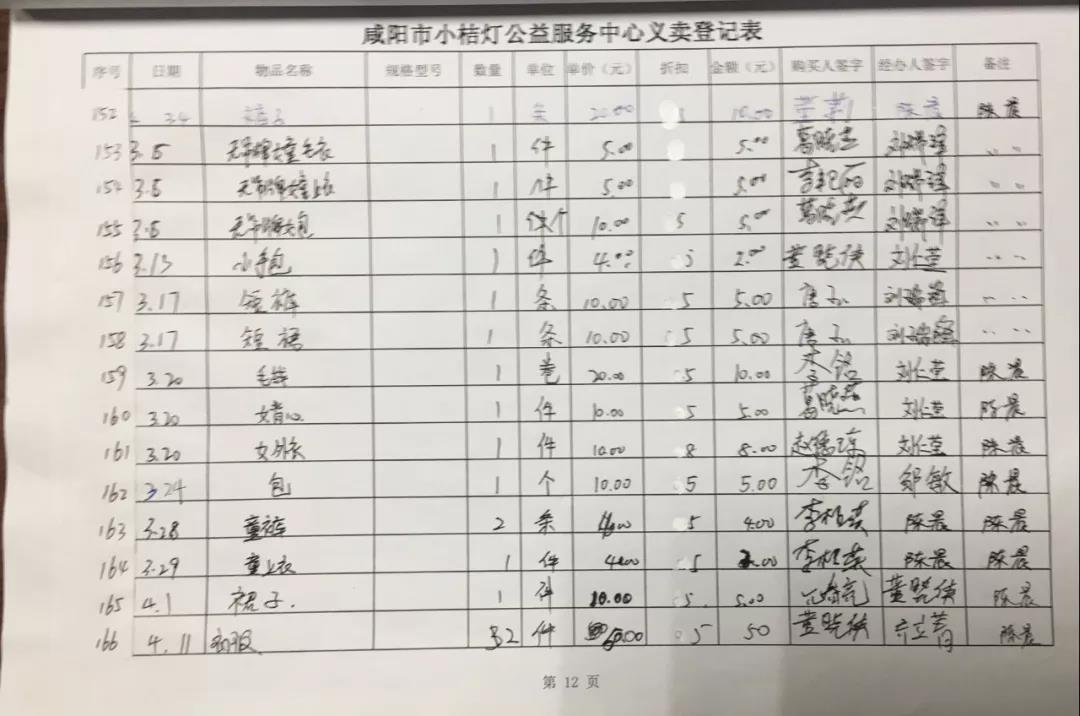 咸阳市小桔灯公益服务中心义卖登记表
序号 日期 物品名称 规格型号 数量 单位 单价（元） 折扣 金额（元） 购买人签字 经办人签字 备注
152 裤子 1 条 20.00 5 10.00 陈晨 陈晨
153 3.5 无吊牌女童毛衣 1 件 5.00 5.00 葛晓燕 刘瑞瑾 〃 〃
154 3.5 无吊牌女童上衣 1 件 5.00 5.00 刘瑞瑾 〃 〃
155 3.5 无吊牌女包 1 个 10.00 5 5.00 葛晓燕 刘瑞瑾 〃 〃
156 3.13 小手包 1 件 4.00 5 2.00 董晓侠 刘仁莹 〃 〃
157 3.17 短裤 1 条 10.00 5 5.00 唐 刘瑞瑾 〃 〃
158 3.17 短裙 1 条 10.00 5 5.00 唐 刘瑞瑾 〃 〃
159 3.20 毛线 1 卷 20.00 5 10.00 李铭 刘仁莹 陈晨
160 3.20 女背心 1 件 10.00 5 5.00 葛晓燕 刘仁莹 陈晨
161 3.20 女外衣 1 件 10.00 8 8.00 赵 刘仁莹 陈晨
162 3.24 包 1 个 10.00 5 5.00 李铭 邹敏 陈晨
163 3.28 童裤 2 条 5 4.00 李柏英 陈晨 陈晨
164 3.29 童上衣 1 件 4.00 5 2.00 李柏英 陈晨 陈晨
165 4.1 裙子. 1 件 10.00 5 5.00 董晓侠 陈晨
166 4.11 32 件 5 50 董晓侠 陈晨
第 12 页